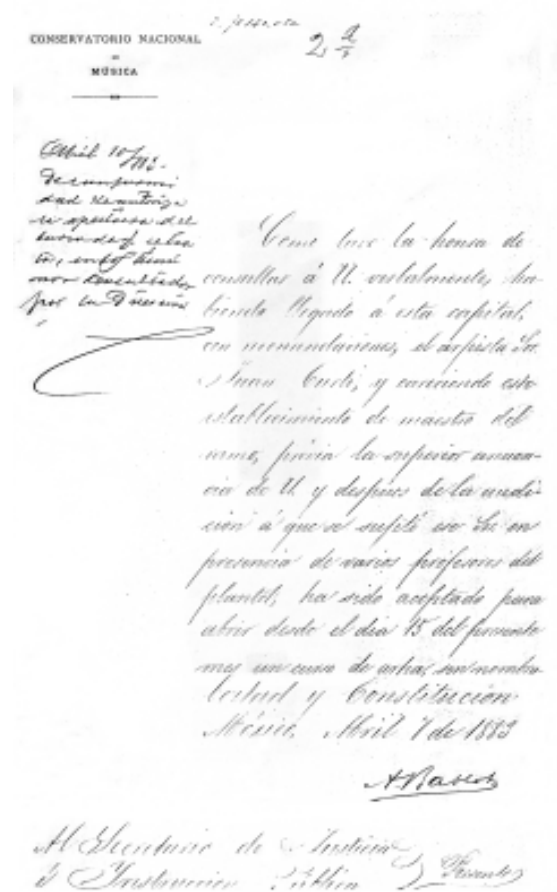 CONSERVATORIO NACIONAL
DE
MÚSICA
2ª
Abril 10/83.
De conformi
dad se autoriza
la apertura del
curso de
en los térmi
nos consultados
por la Dirección
Como tuve la honra de
consultar á U. verbalmente, ha-
biendo llegado á esta capital,
con recomendaciones, el arpista Sr.
Juan Curti, y careciendo este
establecimiento de maestro del
ramo, prévia la superior anuen-
cia de U. y despues de la audi-
ción á que se sujetó ese Sr. en
presencia de varios profesores del
plantel, ha sido aceptado para
abrir desde el dia 15 del presente
mes un curso de arpa, sin nombra
Libertad y Constitucion
México, Abril 7 de 1883
ABalot
Al Secretario de Justicia
é Instruccion Pública
Presente